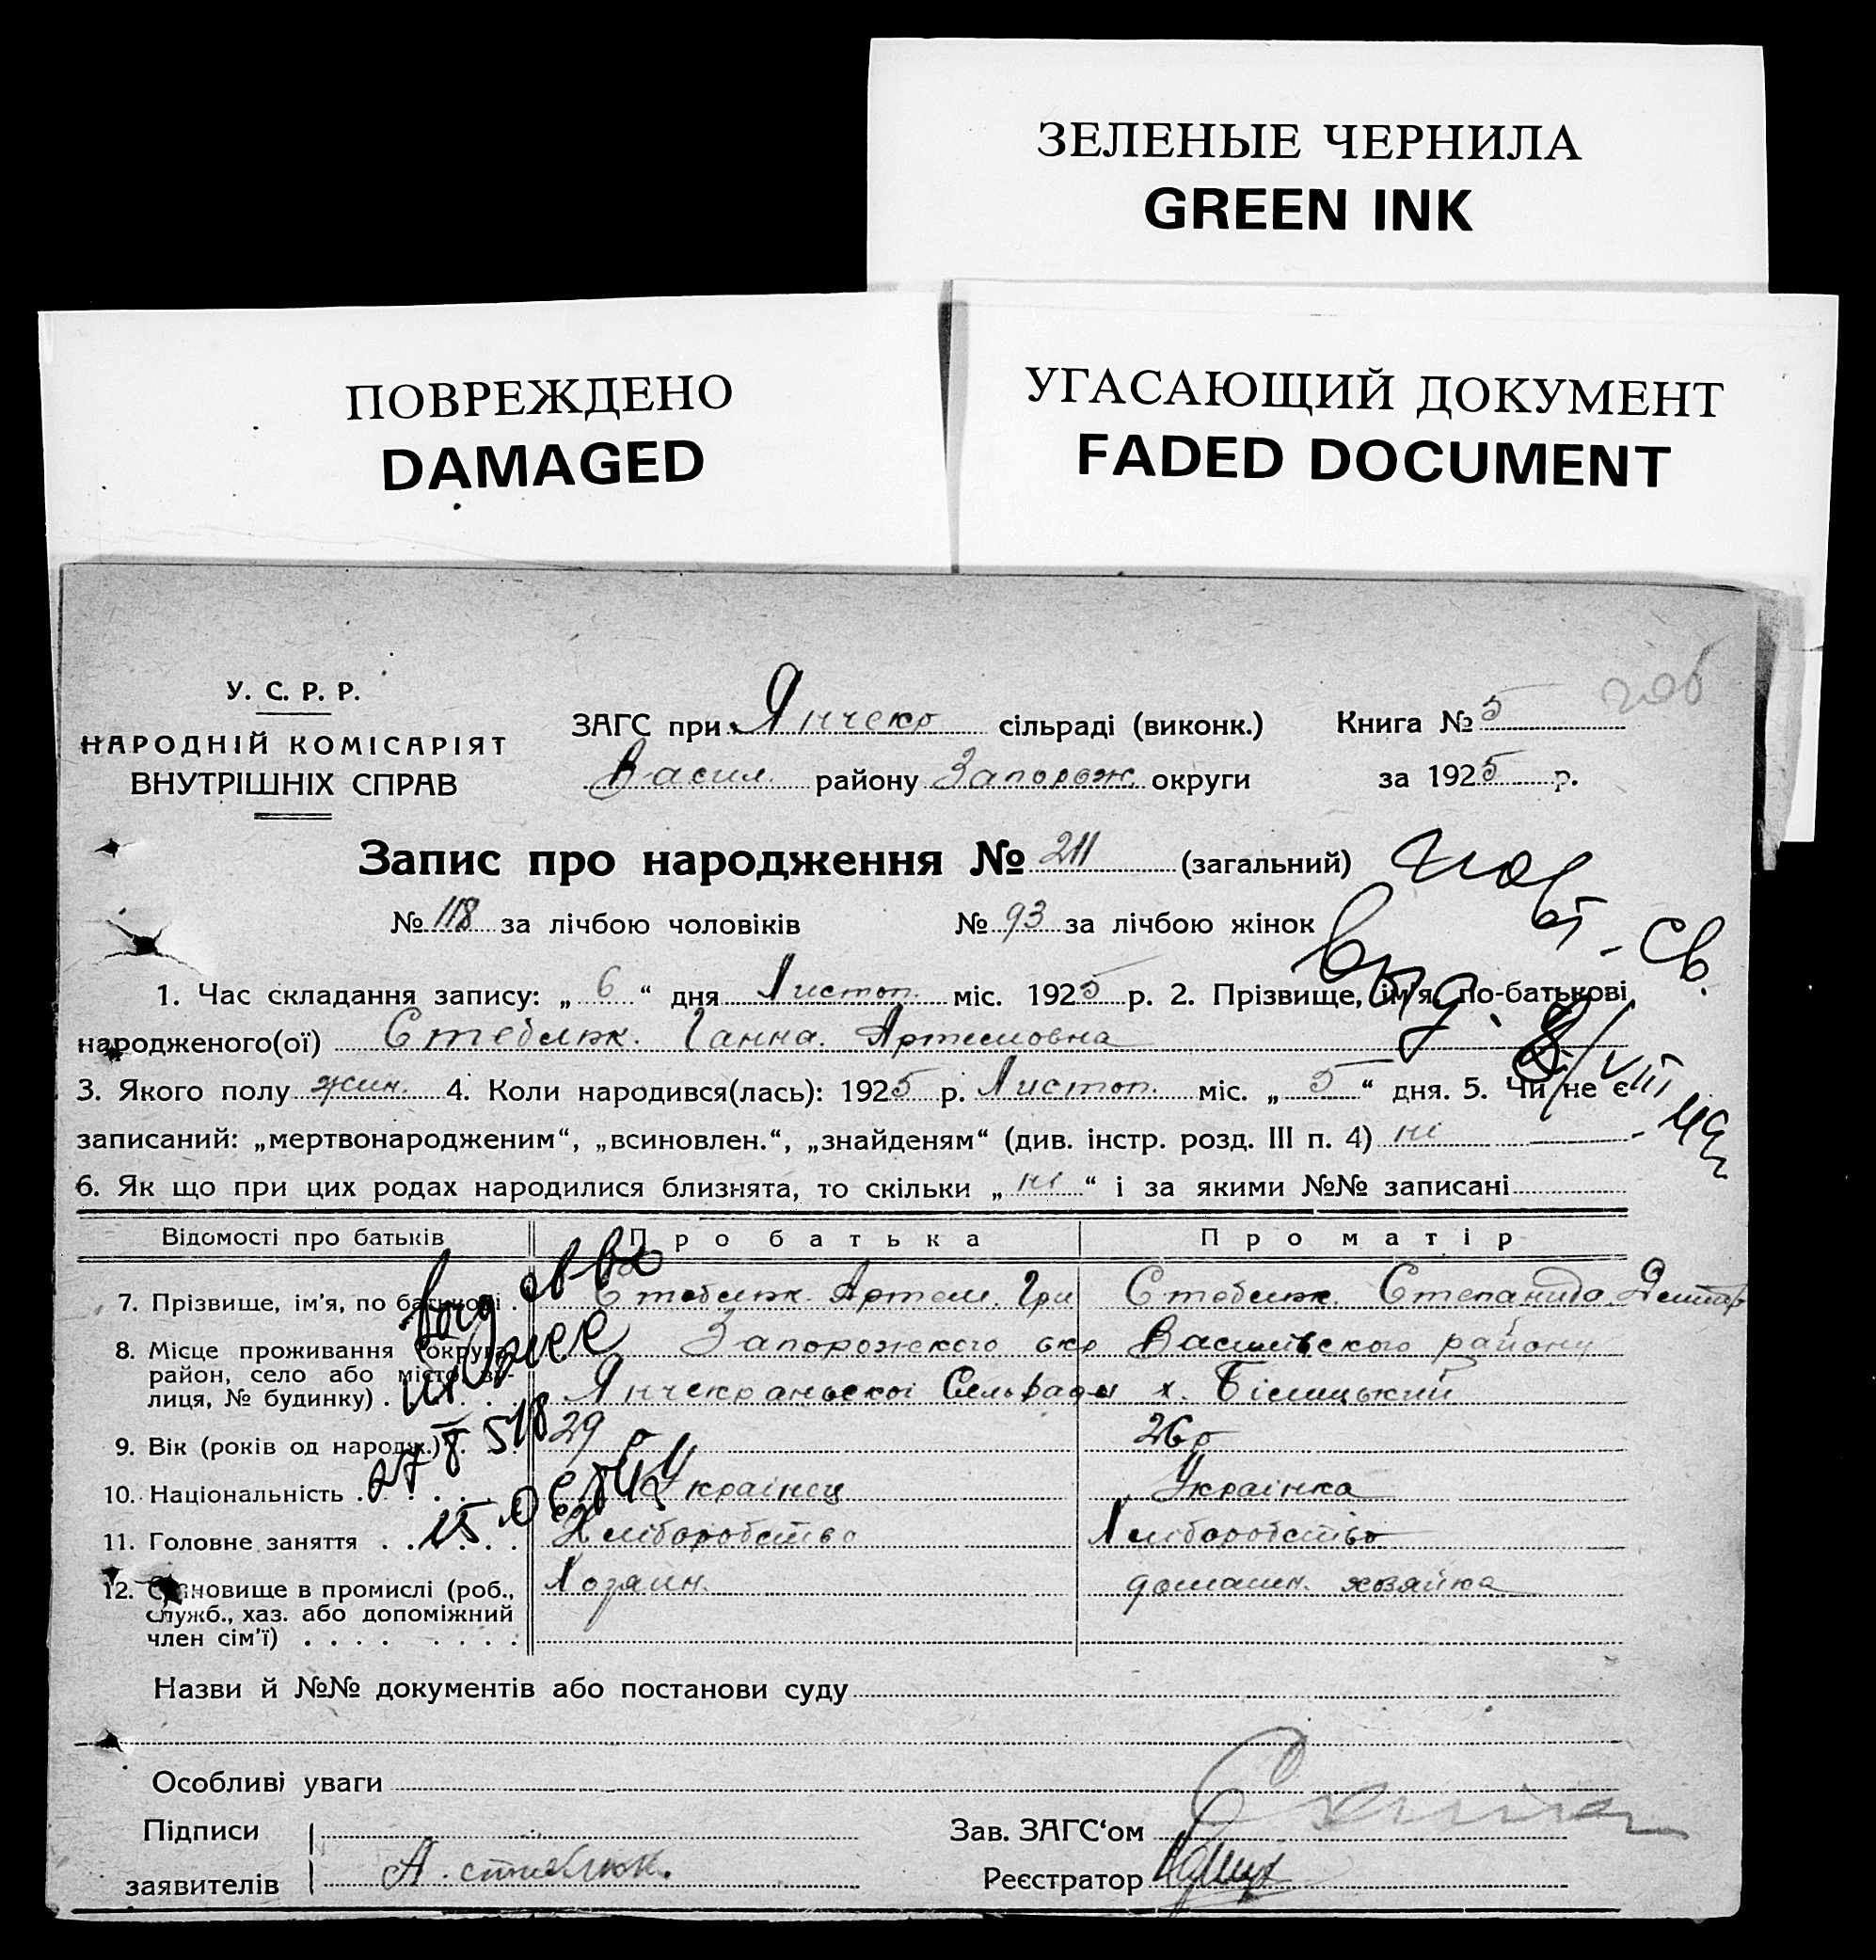 ЗЕЛЕНЫЕ ЧЕРНИЛА
GREEN INK
ПОВРЕЖДЕНО
DAMAGED
УГАСАЮЩИЙ ДОКУМЕНТ
FADED DOCUMENT
У. С. Р. Р.
НАРОДНІЙ КОМІСАРІЯТ
ВНУТРІШНІХ СПРАВ
ЗАГС при Янчекр сільраді (виконк.) Книга № 5
Васил. району Запорож. округи за 1925 р.
Запис про народження № 211 (загальний)
№ 118 за лічбою чоловіків № 93 за лічбою жінок
повт. св.
вид. 8/VIII 49
1. Час складання запису: „ 6 “ дня Листоп. міс. 1925 р. 2. Прізвище, ім'я, по-батькові
народженого(ої) Стеблюк. Ганна. Артемовна
3. Якого полу жин. 4. Коли народився(лась): 1925 р. Листоп. міс. „ 5 “ дня. 5. Чи не є
записаний: „мертвонародженим“, „всиновлен.“, „знайденям“ (див. інстр. розд. III п. 4) ні
6. Як що при цих родах народилися близнята, то скільки „ ні “ і за якими №№ записані
Відомості про батьків Про батька Про матір
7. Прізвище, ім'я, по батькові . Стеблюк. Артем. Гри Стеблюк. Степанида
8. Місце проживання (округа, Запорожского окр Василівского району
район, село або місто, ву-
лиця, № будинку) . Янчекраньскоі Сельради х. Білицький
9. Вік (років од народж.) . 29 р 26 р
10. Національність . Украінец Украінка
11. Головне заняття . Хліборобство Хліборобство
12. Становище в промислі (роб., Хозяин. домашн. хозяйка
служб., хаз. або допоміжний
член сім'ї)
Назви й №№ документів або постанови суду
Особливі уваги
Підписи Зав. ЗАГС‘ом
заявителів А. стеблюк. Реєстратор